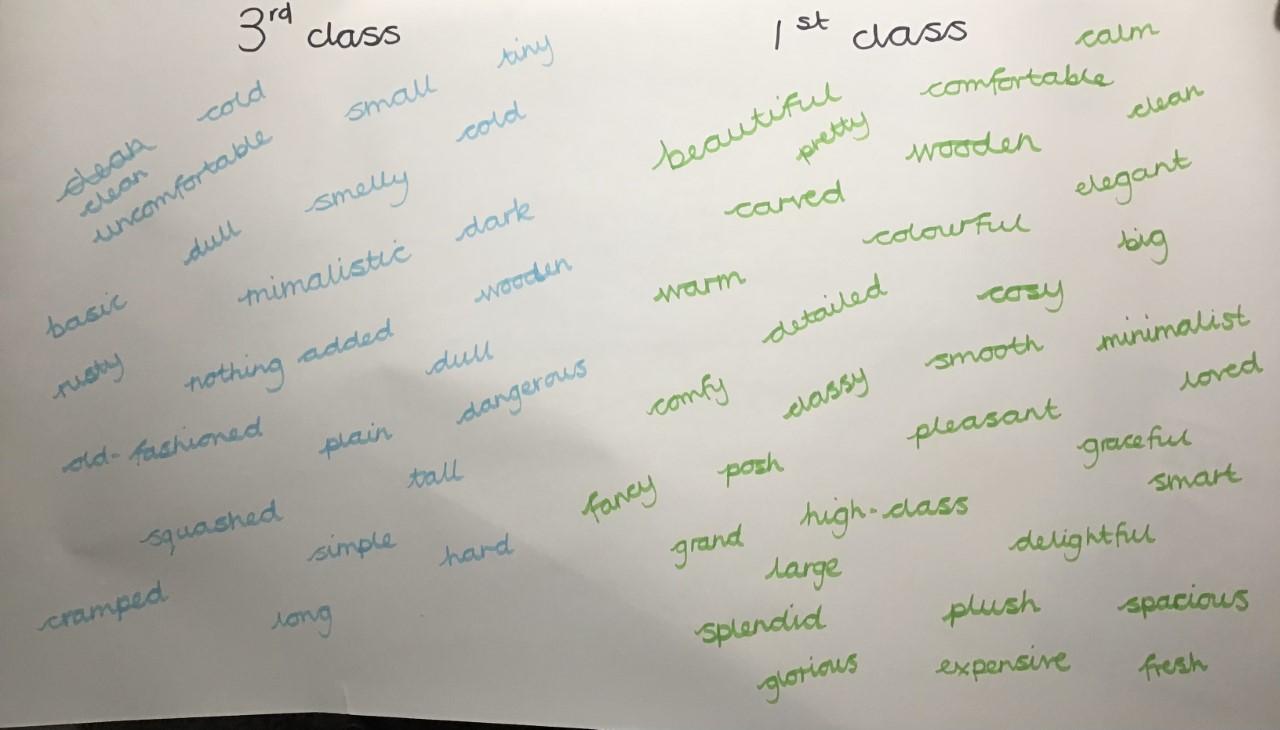 3rd class
tiny
cold
small
cold
clean
clean
uncomfortable
smelly
dull
dark
mimalistic
wooden
basic
nothing added
dull
rusty
dangerous
old-fashioned
plain
tall
squashed
simple
hard
cramped
long
1st class
calm
comfortable
beautiful
pretty
clean
wooden
carved
elegant
colourful
big
warm
detailed
cosy
minimalist
smooth
loved
comfy
classy
pleasant
graceful
posh
fancy
smart
high-class
grand
delightful
large
splendid
plush
spacious
glorious
expensive
fresh